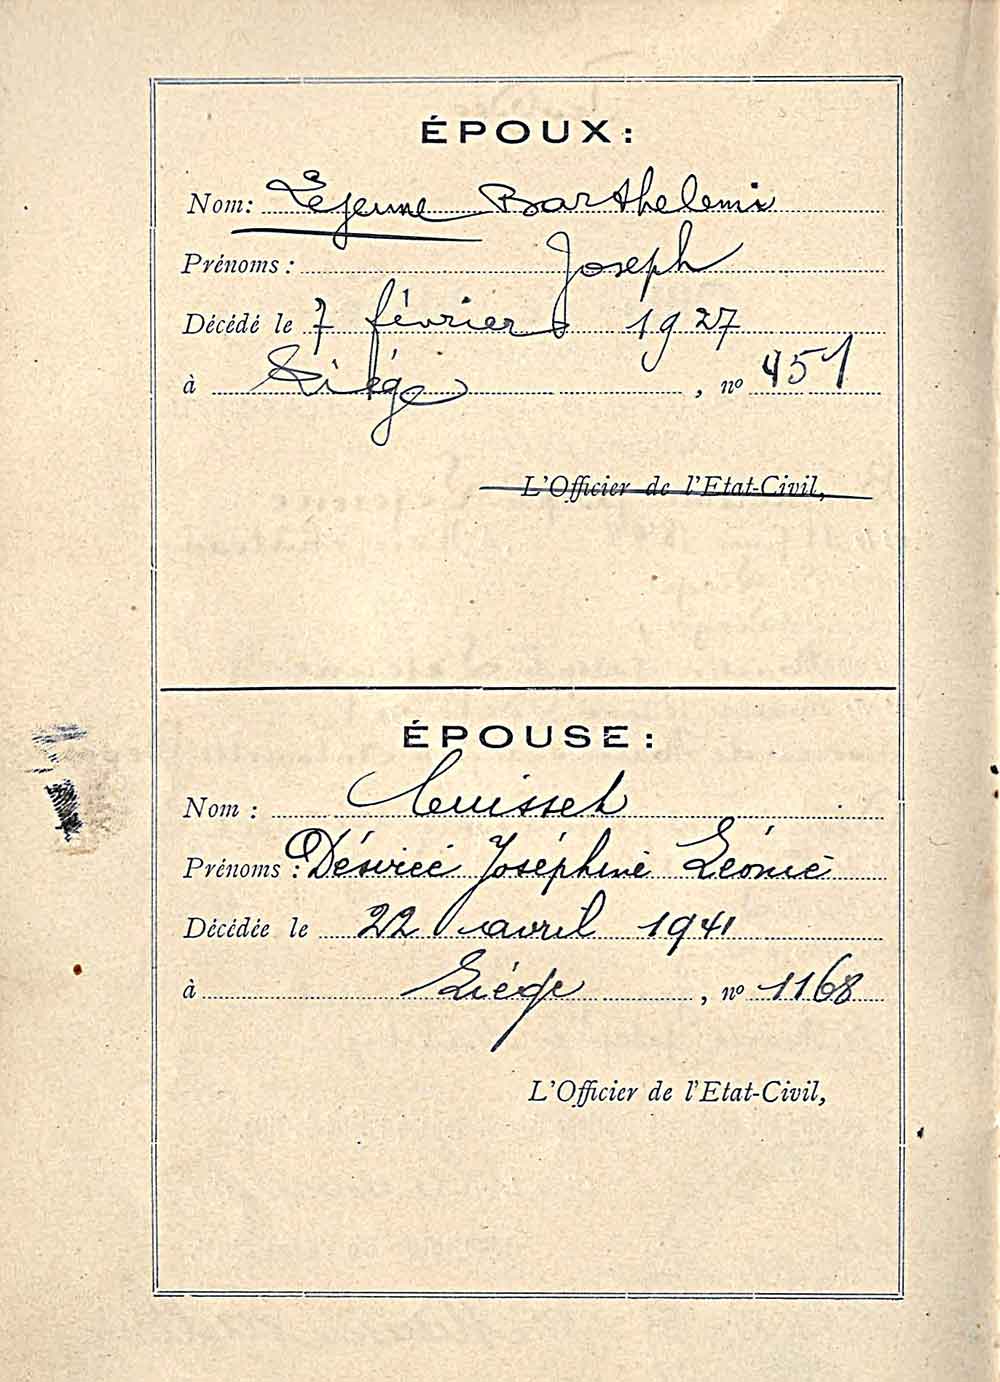 ÉPOUX :
Nom : Lejeune Barthelemi
Prénoms : Joseph
Décédé le 7 février 1927
à Liége , nº 451
L'Officier de l'Etat-Civil,
ÉPOUSE :
Nom :
Prénoms : Désirée Joséphine Léonie
Décédée le 22 avril 1941
à Liége , nº 1168
L'Officier de l'Etat-Civil,